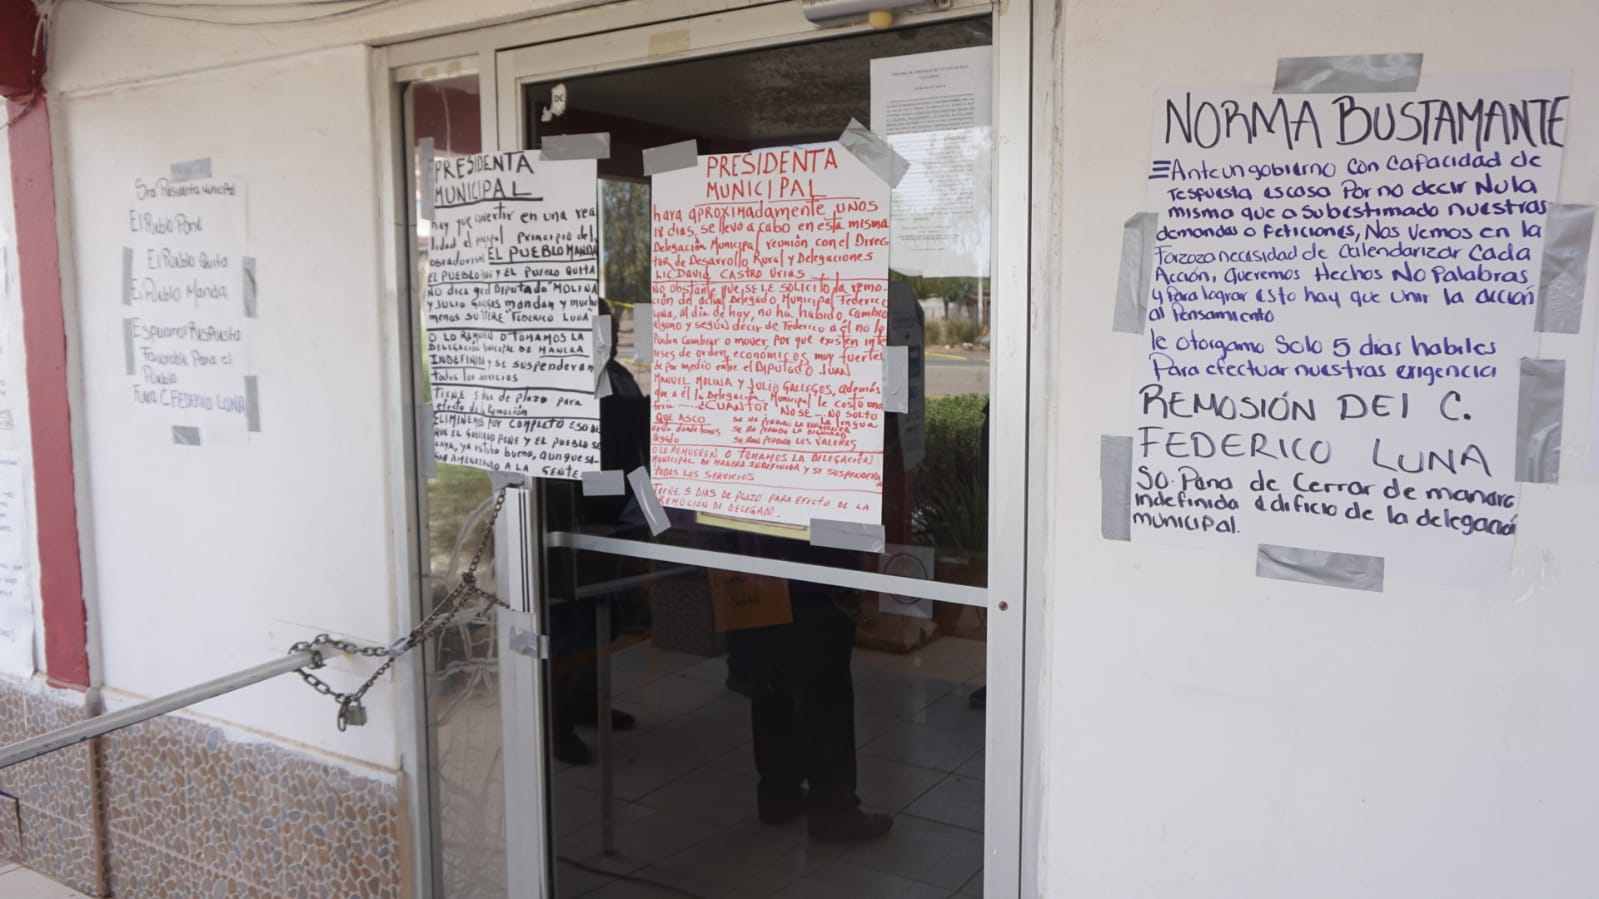 Sra Presidenta Municipal
El Pueblo Pone
El Pueblo Quita
El Pueblo Manda
Esperamos Respuesta
Favorable Para el
Pueblo
Fuera C. FEDERICO LUNA
PRESIDENTA
MUNICIPAL
hay que convertir en una rea
lidad el principio del
obradorismo EL PUEBLO MANDA
EL PUEBLO Y EL PUEBLO QUITA
NO dica que DIPUTADO MOLINA
Y JULIO GALLEGOS mandan y mucho
menos su TITERE "FEDERICO LUNA"
O LO REMUEVEN O TOMAMOS LA
DELEGACIÓN MUNICIPAL DE MANERA
INDEFINIDA y SE suspenderan
todos los servicios
TIENE 5 dias de plazo para
efecto de la Remoción
ELIMINEMOS POR COMPLETO ESO DE
QUE EL GOBIERNO PONE Y EL PUEBLO SE
CALLA, YA estubo bueno, aunque si
A LA GENTE
PRESIDENTA
MUNICIPAL
hara APROXIMADAMENTE UNOS
18 dias, se llevo a cabo en esta misma
Delegación Municipal reunión con el Direc
tor de Desarrollo Rural y Delegaciones
LIC. DAVID CASTRO URIAS
NO OBSTANTE que, SE LE SOLICITO la remo-
ción del actual Delegado Municipal Federico
Luna, al dia de hoy, no ha habido cambio
alguno y según decir de Federico a él no lo
Pueden cambiar o mover, por que existen inte
reses de orden economicos muy fuertes
de por medio entre el DIPUTADO JUAN
MANUEL MOLINA Y JULIO GALLEGOS, además
que a él la Delegación Municipal le costo una
feria ...... ¿CUANTO? NO SE ... NO SOLTO
LA lengua
QUE ASCO
hasta donde hemos
llegado
SE HA PERDIDO LA VERGUENZA
SE HA PERDIDO LA DIGNIDAD
SE HAN PERDIDO LOS VALORES
O LO REMUEVEN O TOMAMOS LA DELEGACIÓN
MUNICIPAL DE MANERA INDEFINIDA Y SE SUSPENDERA
TODOS LOS SERVICIOS
TIENE 5 DIAS DE PLAZO PARA EFECTO DE LA
REMOCION DE DELEGADO.
NORMA BUSTAMANTE
Ante un gobierno con capacidad de
respuesta escasa Por no decir Nula
misma que a subestimado nuestras
demandas o Peticiones, Nos vemos en la
Forzoza necesidad de Calendarizar Cada
Acción, queremos Hechos No Palabras
y Para lograr esto hay que unir la acción
al Pensamiento
le otorgamo Solo 5 dias habiles
Para efectuar nuestras exigencia
REMOSIÓN DEl C.
FEDERICO LUNA
So. Pena de Cerrar de manera
indefinida edificio de la delegación
municipal.